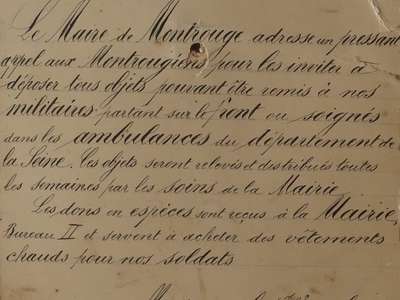 Le Maire de Montrouge adresse un pressant
appel aux Montrougiens pour les inviter à
déposer tous objets pouvant être remis à nos
militaires partant sur le front ou soignés
dans les ambulances du département de
la Seine. Les objets seront relevés et distribués toutes
les semaines par les soins de la Mairie
Les dons en espèces sont reçus à la Mairie,
Bureau II et servent à acheter des vêtements
chauds pour nos soldats